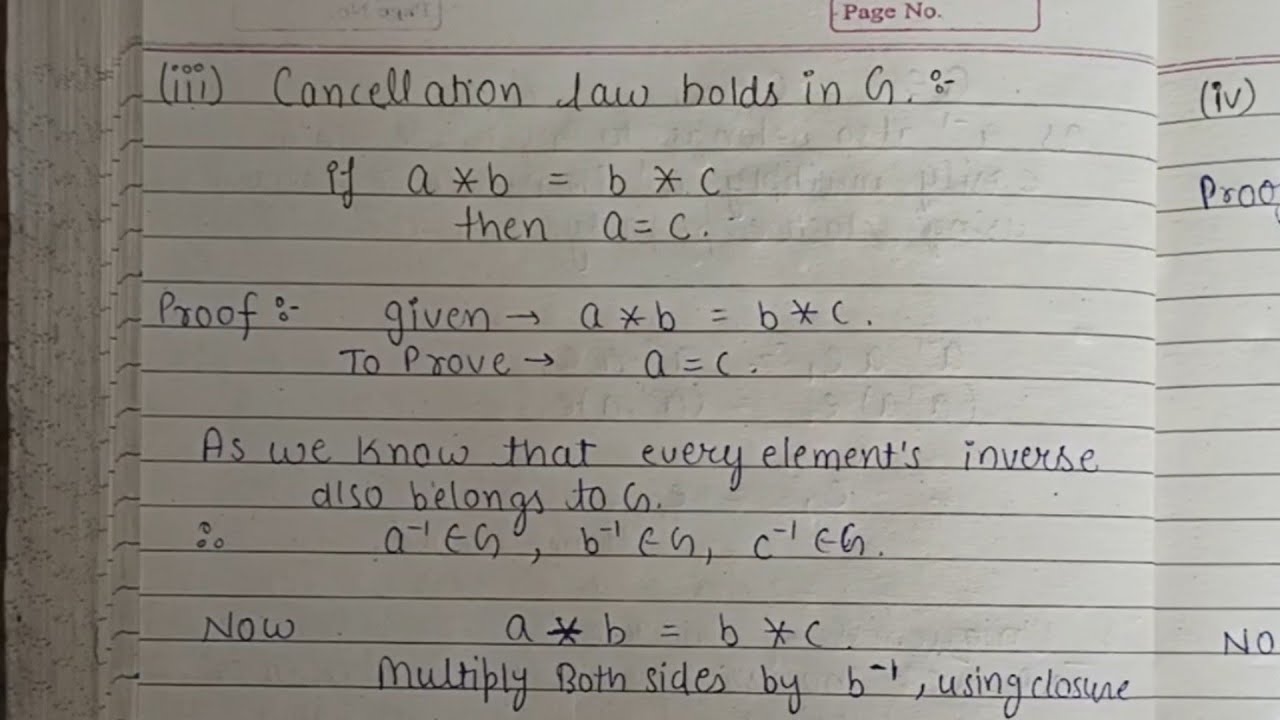 Page No.
(iii) Cancellation law holds in G. :-
if a * b = b * c
then a = c.
Proof :- given → a * b = b * c.
To Prove → a = c.
As we know that every element's inverse
also belongs to G.
∴ a⁻¹ ∈ G, b⁻¹ ∈ G, c⁻¹ ∈ G.
Now a * b = b * c
Multiply Both sides by b⁻¹, using closure
(iv)
Proof
NO